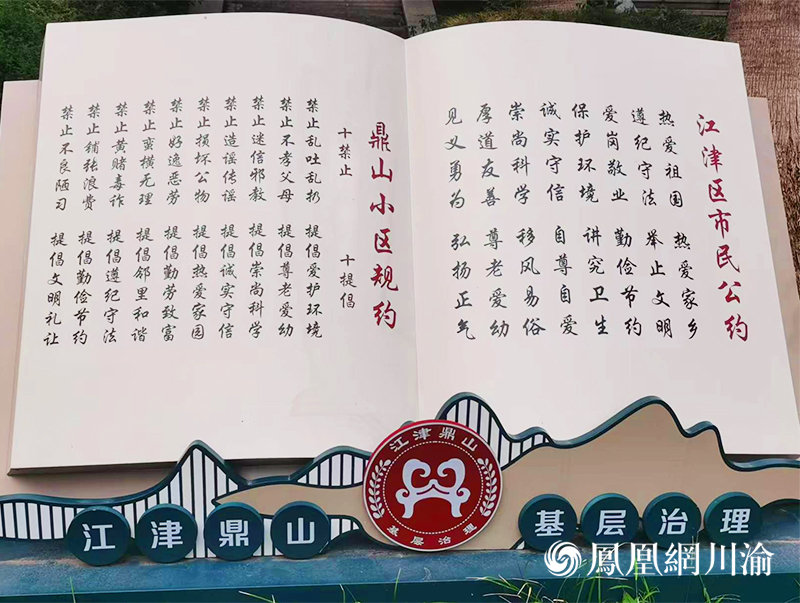 江津区市民公约
热爱祖国 热爱家乡
遵纪守法 举止文明
爱岗敬业 勤俭节约
保护环境 讲究卫生
诚实守信 自尊自爱
崇尚科学 移风易俗
厚道友善 尊老爱幼
见义勇为 弘扬正气
鼎山小区规约
十禁止 十提倡
禁止乱吐乱扔 提倡爱护环境
禁止不孝父母 提倡尊老爱幼
禁止迷信邪教 提倡崇尚科学
禁止造谣传谣 提倡诚实守信
禁止损坏公物 提倡热爱家园
禁止好逸恶劳 提倡勤劳致富
禁止蛮横无理 提倡邻里和谐
禁止黄赌毒诈 提倡遵纪守法
禁止铺张浪费 提倡勤俭节约
禁止不良陋习 提倡文明礼让
江津鼎山
基层治理
江津鼎山
基层治理
鳳凰網川渝